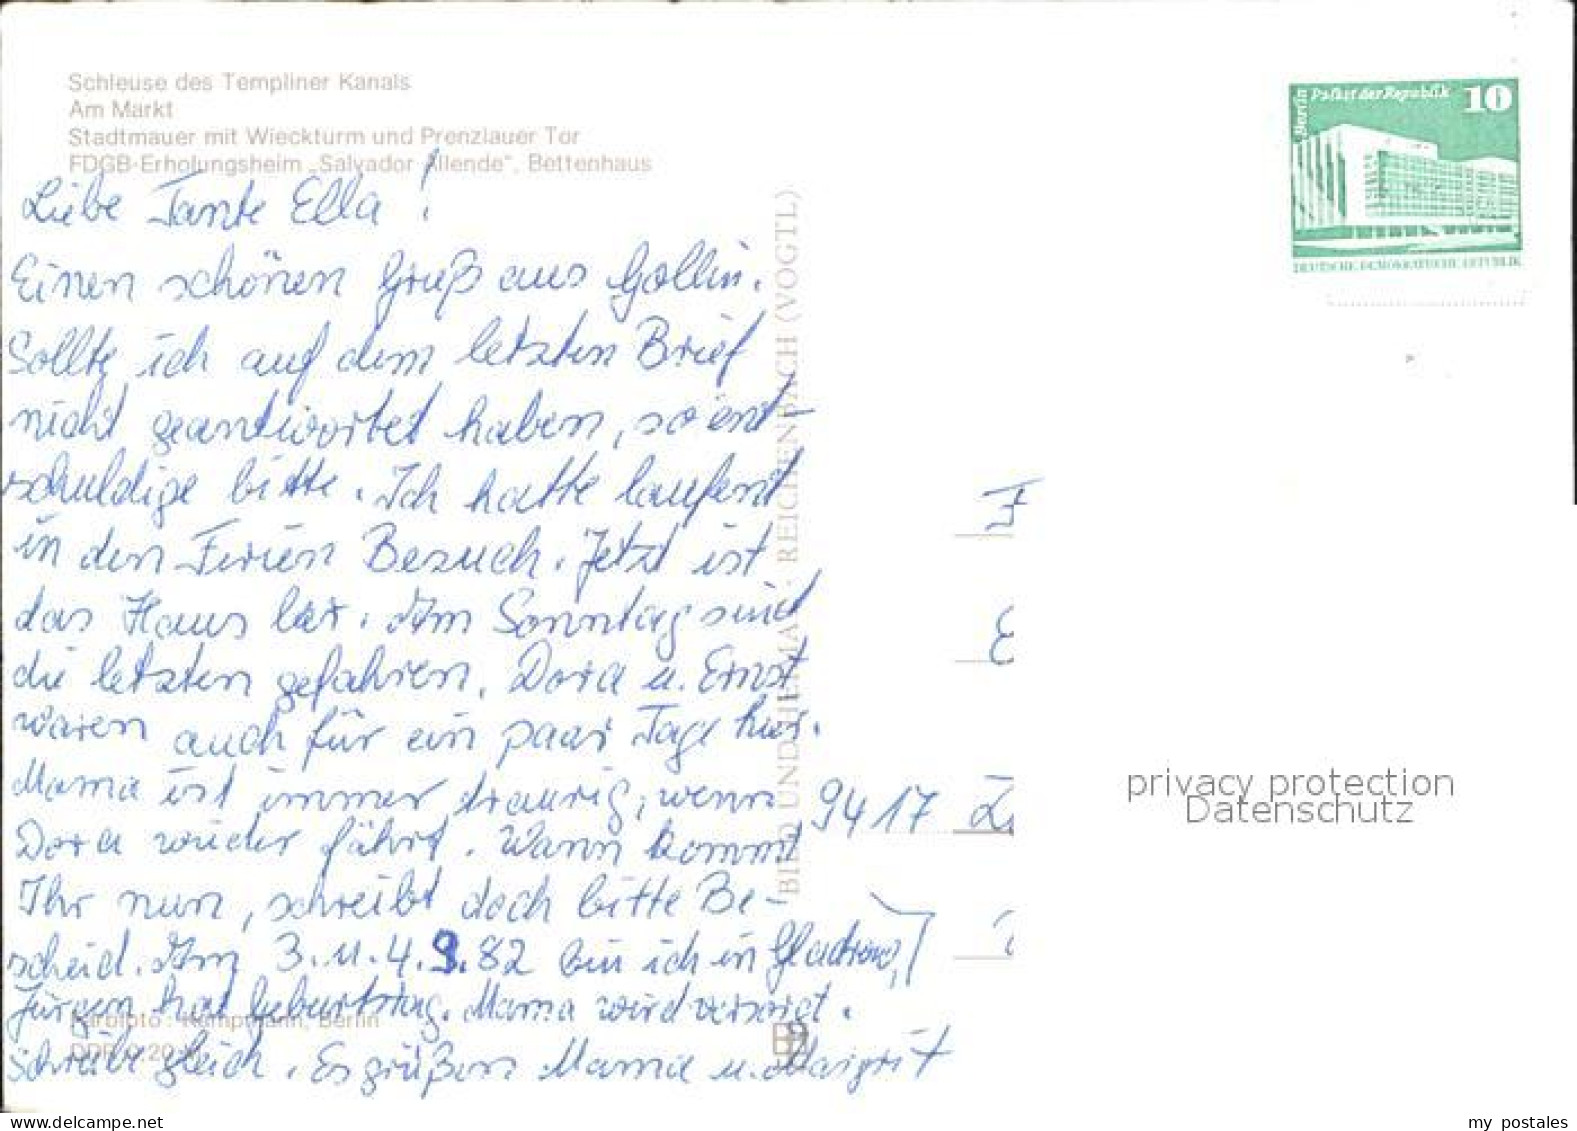 Schleuse des Templiner Kanals
Am Markt
Stadtmauer mit Wieckturm und Prenzlauer Tor
FDGB-Erholungsheim „Salvador Allende“, Bettenhaus
Berlin Palast der Republik 10
DEUTSCHE DEMOKRATISCHE REPUBLIK
Liebe Tante Ella!
Einen schönen Gruß aus Gollin.
Sollte ich auf dem letzten Brief
nicht geantwortet haben, so ent-
schuldige bitte. Ich hatte laufend
in den Ferien Besuch. Jetzt ist
das Haus leer. Am Sonntag sind
die letzten gefahren. Dora u. Ernst
waren auch für ein paar Tage hier.
Mama ist immer traurig, wenn
Dora wieder fährt. Wann kommt
Ihr nun, schreibt doch bitte Be-
scheid. Am 3. u. 4. 9. 82 bin ich in
Jürgen hat Geburtstag. Mama wird versorgt.
Schreibe gleich. Es grüßen Mama u. Margrit
BILD UND HEIMAT REICHENBACH (VOGTL)
9417
privacy protection
Datenschutz
Farbfoto: Kemptmann, Berlin
DDR 0,20 M
www.delcampe.net
my_postales